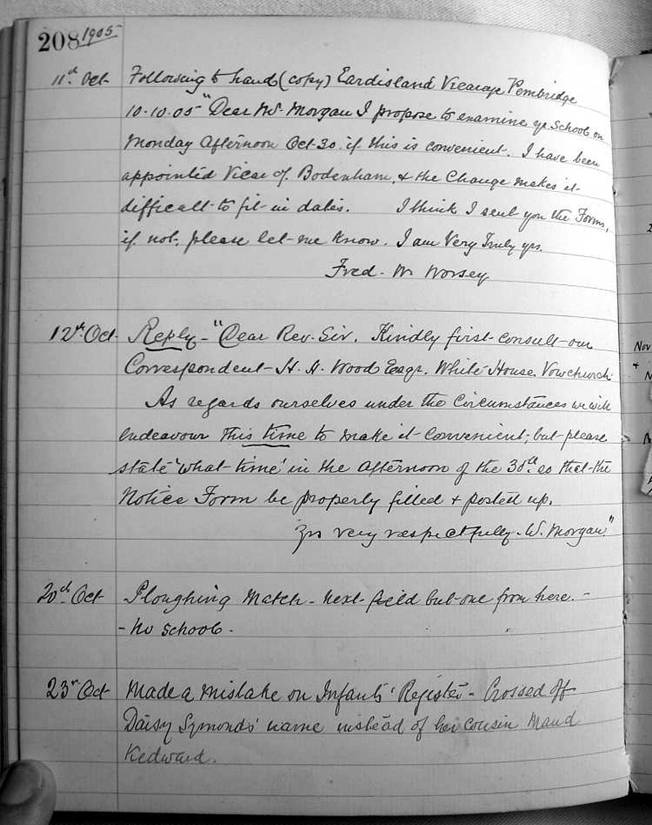 208 1905
11th Oct- Following to hand (copy) Eardisland Vicarage Pembridge
10-10-05 "Dear Mr. Morgan I propose to examine yr School on
Monday Afternoon Oct. 30. if this is convenient. I have been
appointed Vicar of Bodenham, & the Change makes it
difficult to fit in dates. I think I sent you the Forms,
if not, please let me know. I am Very Truly yrs.
Fred. W Worsey
12th Oct- Reply - "Dear Rev. Sir. Kindly first consult our
Correspondent H. H. Wood Esqr. White House. Vowchurch.
As regards ourselves under the Circumstances we will
endeavour this time to make it convenient; but please
state 'what time' in the afternoon of the 30th so that the
Notice Form be properly filled & posted up.
Yrs very respectfully - W. Morgan"
20th Oct Ploughing Match - next field but one from here. -
- No School.
23rd Oct Made a mistake on Infants' Register - Crossed off
Daisy Symonds' name instead of her cousin Maud
Kedward.
Nov